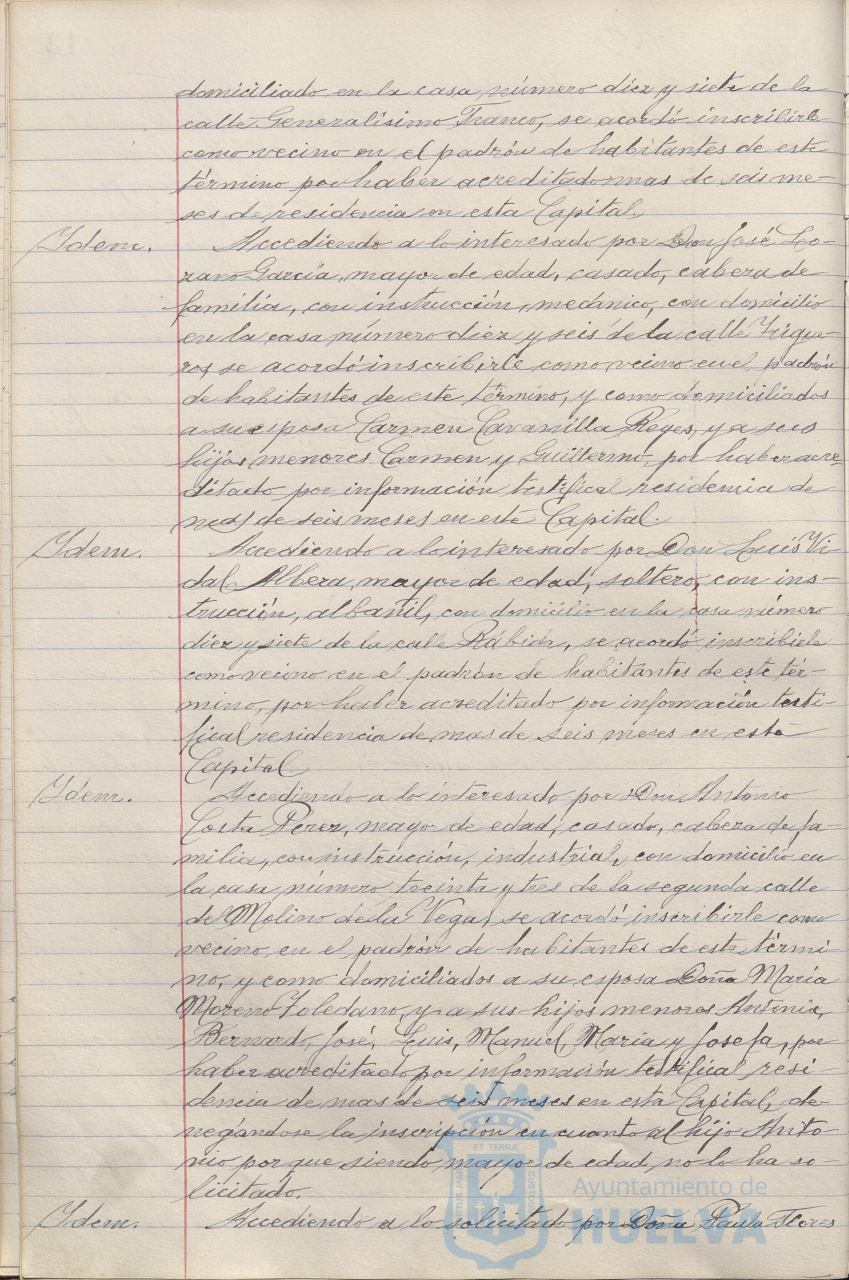 domiciliado en la casa número diez y siete de la
calle Generalísimo Franco, se acordó inscribirle
como vecino en el padrón de habitantes de este
término por haber acreditado mas de seis me-
ses de residencia en esta Capital.
Idem. Accediendo a lo interesado por Don José Lo-
zano García, mayor de edad, casado, cabeza de
familia, con instrucción, mecánico, con domicilio
en la casa número diez y seis de la calle Trigue-
ros, se acordó inscribirle como vecino en el padrón
de habitantes de este término, y como domiciliados
a su esposa Carmen Cavanilla Reyes, y a seus
hijos menores Carmen y Guillermo, por haber acre-
ditado por información testifical residencia de
mas de seis meses en esta Capital.
Idem. Accediendo a lo interesado por Don Luis Vi-
dal Albera, mayor de edad, soltero, con ins-
trucción, albañil, con domicilio en la casa número
diez y siete de la calle Rábida, se acordó inscribirle
como vecino en el padrón de habitantes de este tér-
mino, por haber acreditado por información testi-
fical residencia de mas de seis meses en esta
Capital.
Idem. Accediendo a lo interesado por Don Antonio
Costa Pérez, mayor de edad, casado, cabeza de fa-
milia, con instrucción, industrial, con domicilio en
la casa número treinta y tres de la segunda calle
del Molino de la Vega, se acordó inscribirle como
vecino en el padrón de habitantes de este térmi-
no, y como domiciliados a su esposa Doña María
Moreno Toledano, y a sus hijos menores Antonia,
Bernardo, José, Luis, Manuel, María y Josefa, por
haber acreditado por información testifical resi-
dencia de mas de seis meses en esta Capital, de-
negándose la inscripción en cuanto al hijo Anto-
nio por que siendo mayor de edad no lo ha so-
licitado.
Idem. Accediendo a lo solicitado por Doña Paula Flores
ET TERRA
Ayuntamiento de
HUELVA